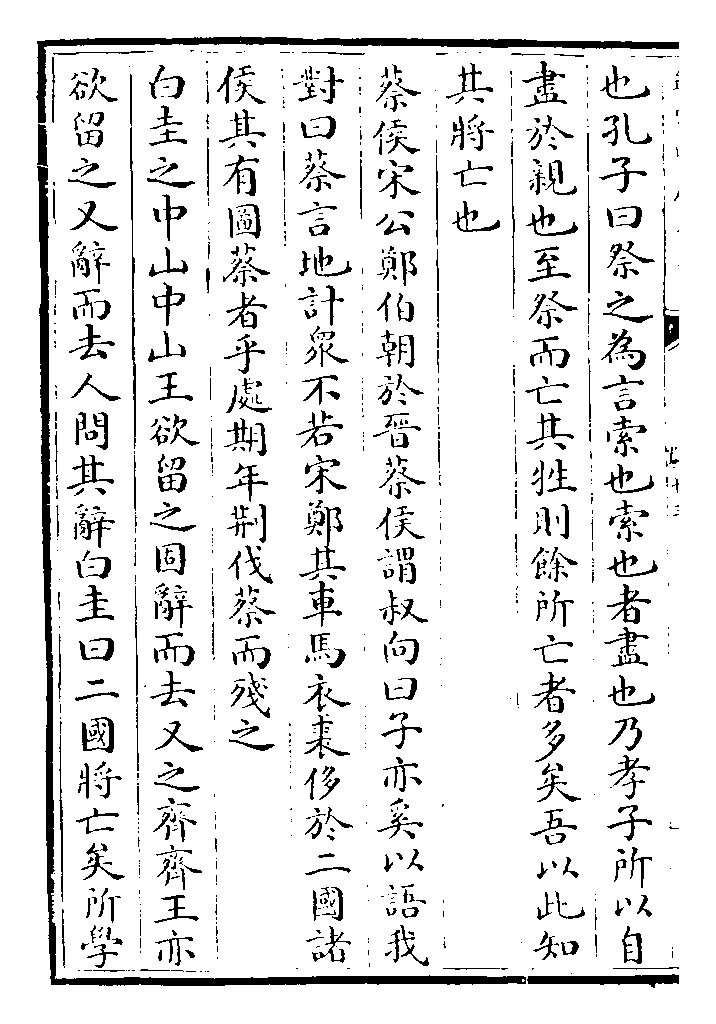 也孔子曰祭之為言索也索也者盡也乃孝子所以自
盡於親也至祭而亡其牲則餘所亡者多矣吾以此知
其將亡也
蔡侯宋公鄭伯朝於晉蔡侯謂叔向曰子亦奚以語我
對曰蔡言地計衆不若宋鄭其車馬衣裘侈於二國諸
侯其有圖蔡者乎處期年荆伐蔡而殘之
白圭之中山中山王欲留之固辭而去又之齊齊王亦
欲留之又辭而去人問其辭白圭曰二國將亡矣所學